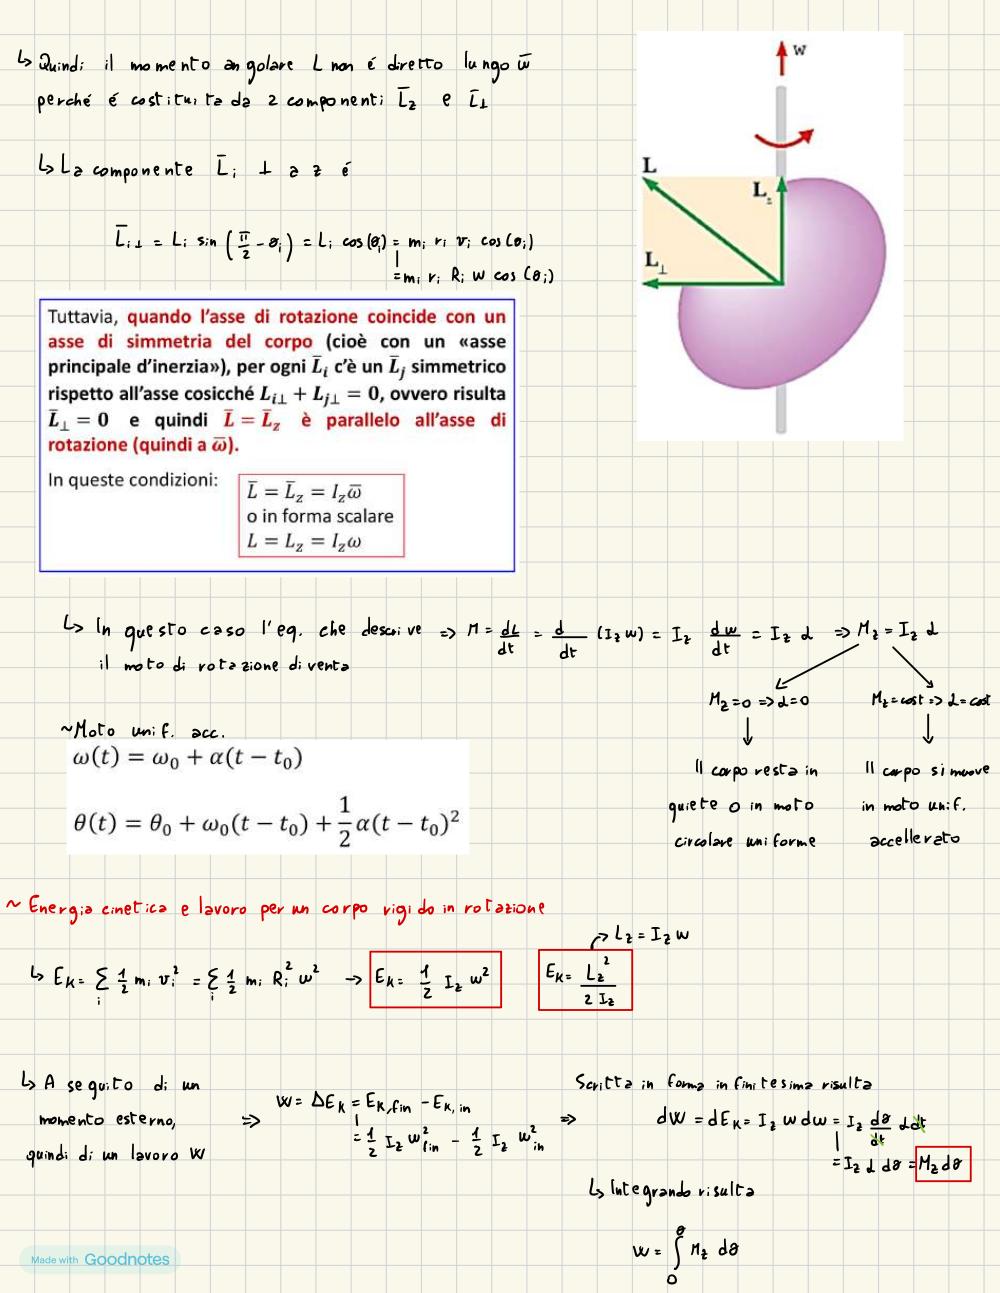 ↳ Quindi il momento angolare L non é diretto lungo w̄
perché é costituita da 2 componenti L̄z e L̄⊥
↳ La componente L̄i ⊥ a z é
L̄i⊥ = Li sin (π/2 - θi) = Li cos (θi) = mi ri vi cos (θi)
= mi ri Ri w cos (θi)
w
L
Lz
L⊥
Tuttavia, quando l'asse di rotazione coincide con un
asse di simmetria del corpo (cioè con un «asse
principale d'inerzia»), per ogni L̄i c'è un L̄j simmetrico
rispetto all'asse cosicché Li⊥ + Lj⊥ = 0, ovvero risulta
L̄⊥ = 0 e quindi L̄ = L̄z è parallelo all'asse di
rotazione (quindi a ω̄).
In queste condizioni:
L̄ = L̄z = Izω̄
o in forma scalare
L = Lz = Izω
↳ In questo caso l'eq. che descrive => M = dL/dt = d/dt (Iz w) = Iz dw/dt = Iz α => Mz = Iz α
il moto di rotazione diventa
Mz = 0 => α = 0
Mz = cost => α = cost
Il corpo resta in
quiete o in moto
circolare uniforme
Il corpo si muove
in moto unif.
accellerato
~Moto unif. acc.
ω(t) = ω0 + α(t − t0)
θ(t) = θ0 + ω0(t − t0) + 1/2 α(t − t0)²
~ Energia cinetica e lavoro per un corpo rigido in rotazione
↳ EK = Σi 1/2 mi vi² = Σi 1/2 mi Ri² w² → EK = 1/2 Iz w²
EK = Lz²/2 Iz
→ Lz = Iz w
↳ A seguito di un
momento esterno,
quindi di un lavoro W
=> W = ΔEK = EK,fin - EK,in =>
= 1/2 Iz w²fin - 1/2 Iz w²in
Scritta in forma infinitesima risulta
dW = dEK = Iz w dw = Iz dθ/dt α dt
= Iz α dθ = Mz dθ
↳ Integrando risulta
W = ∫0^θ Mz dθ
Made with Goodnotes